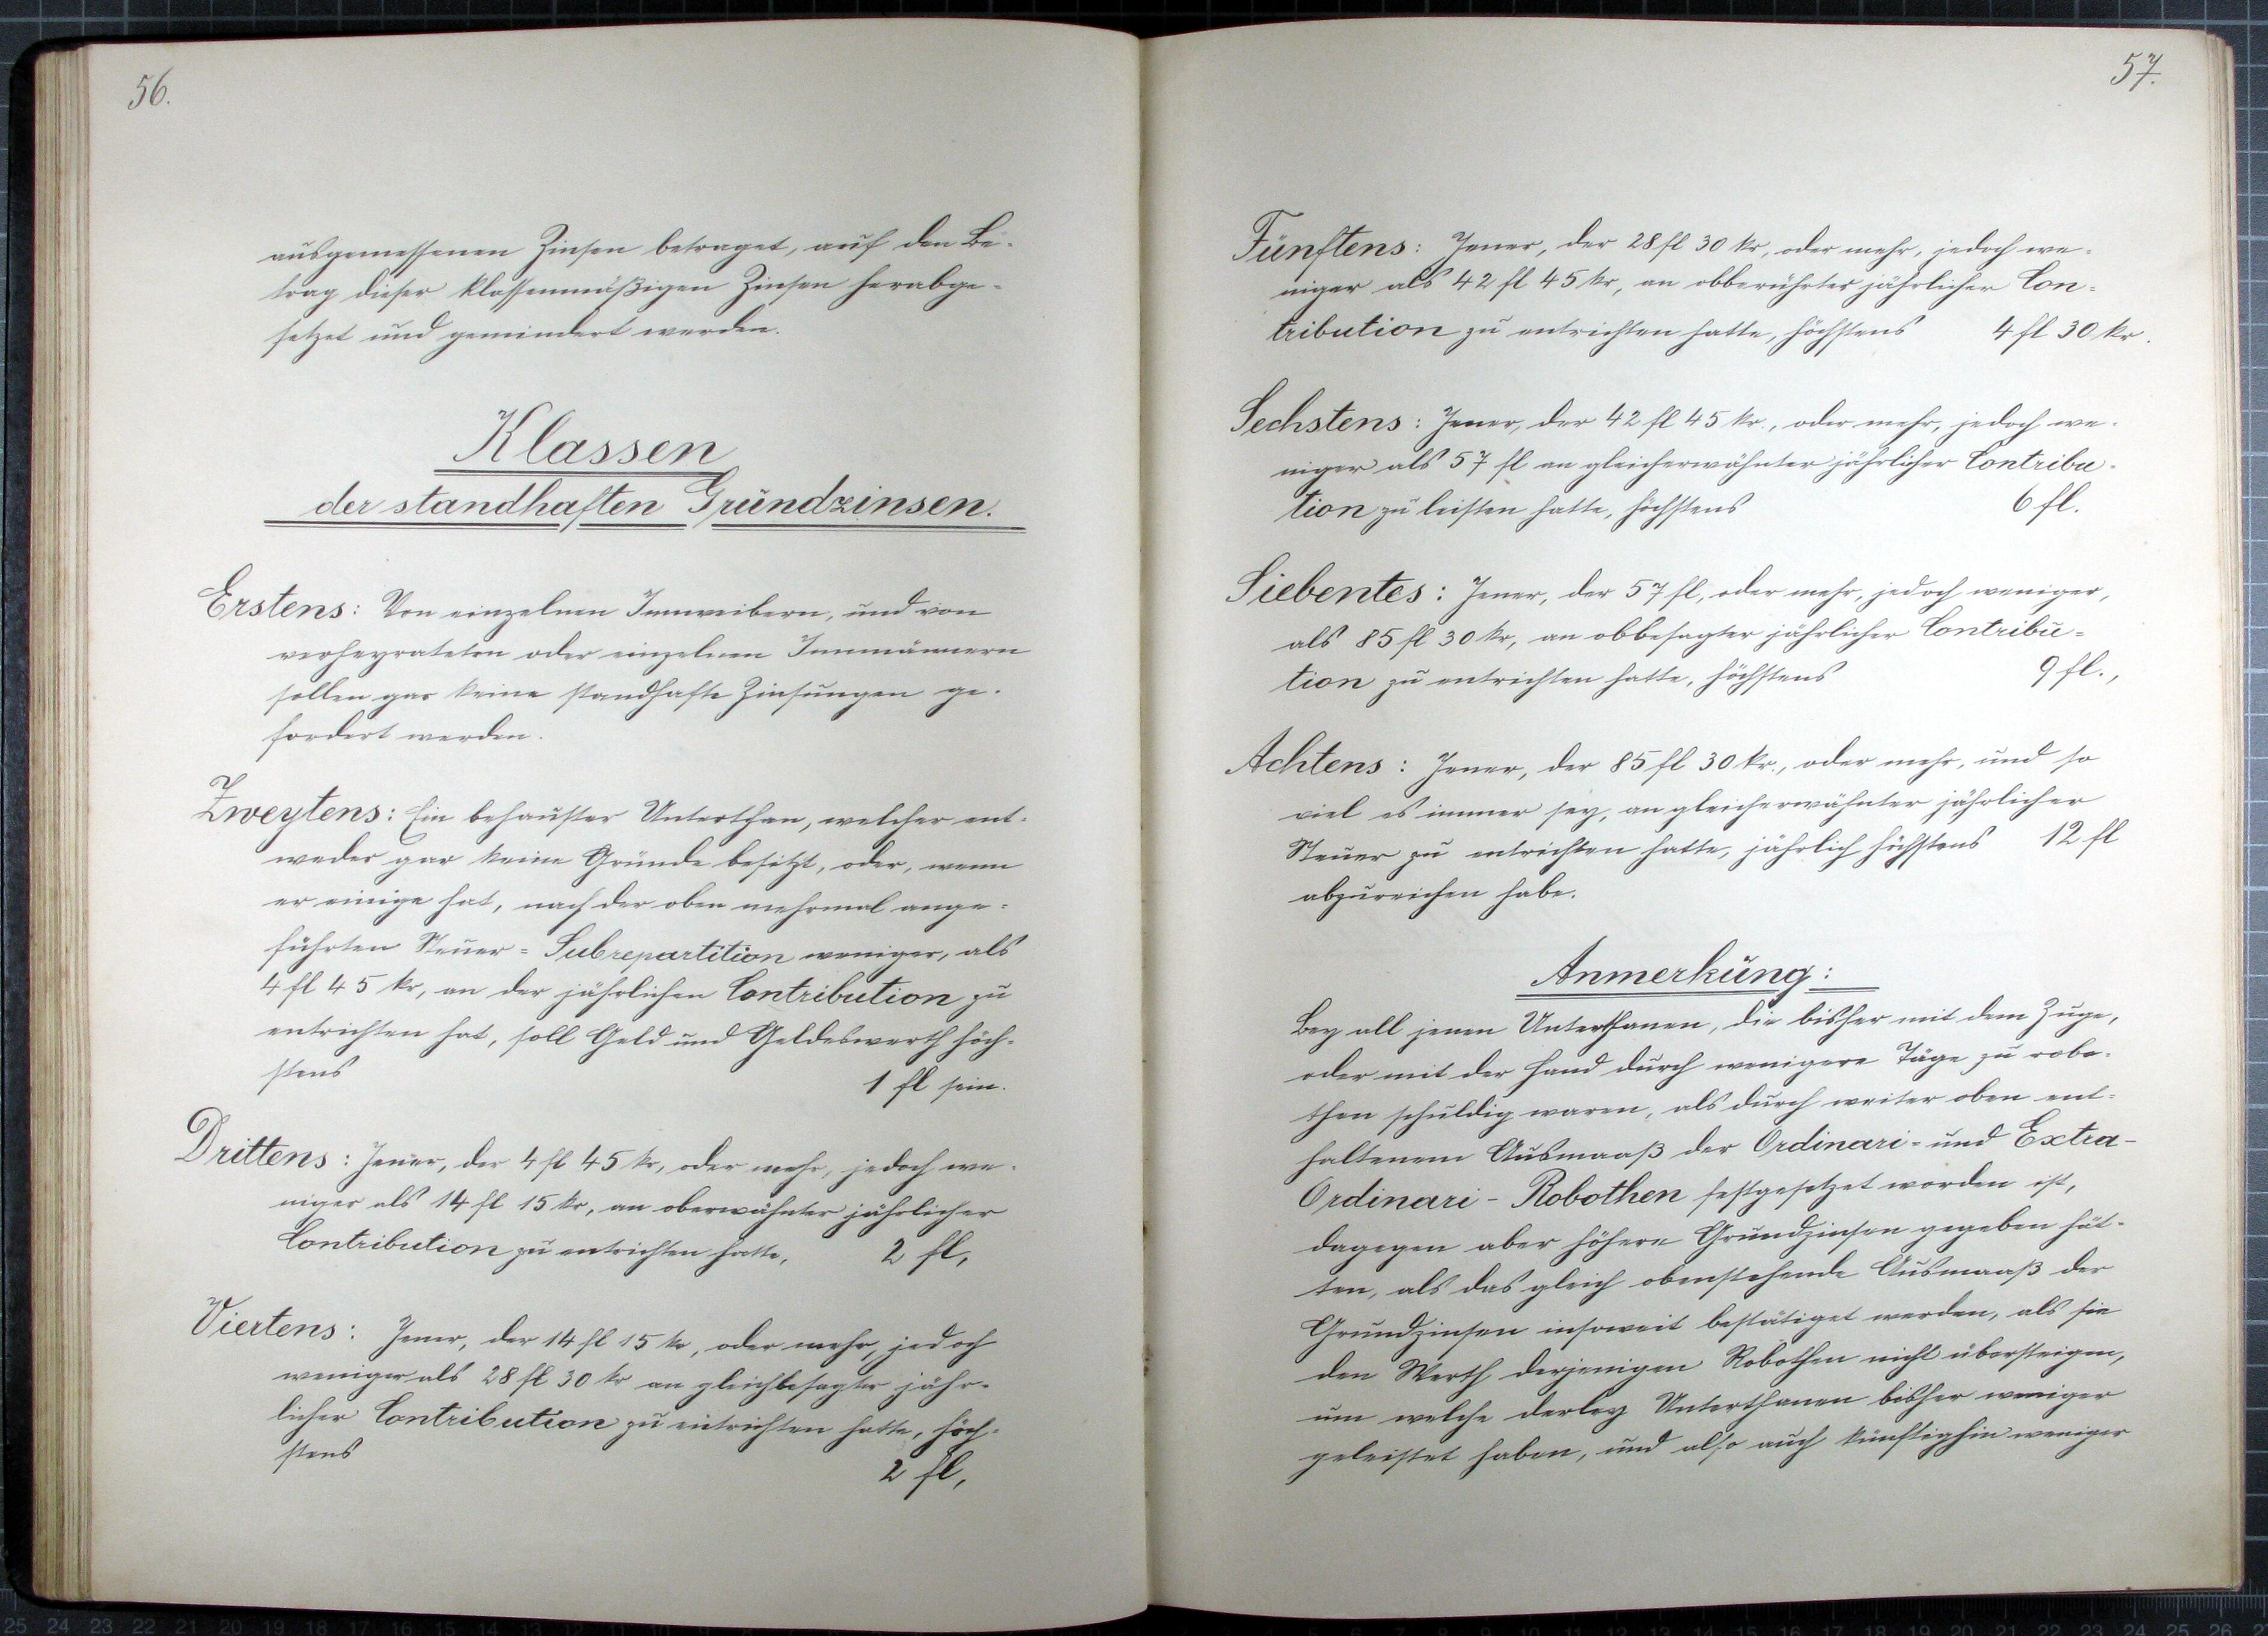 56.
ausgemessenen Zinsen betraget, auf den Be-
trag dieser klassenmäßigen Zinsen herabge-
setzet und gemindert werden.
Klassen
der standhaften Grundzinsen.
Erstens: Von einzelnen Innweibern, und von
verheyrateten oder einzelnen Innmännern
sollen gar keine standhafte Zinsungen ge-
fordert werden.
Zweytens: Ein behauster Unterthan, welcher ent-
weder gar keine Gründe besitzt, oder, wenn
er einige hat, nach der oben mehrmal ange-
führten Steuer-Subrepartition weniger, als
4 fl 45 kr, an der jährlichen Contribution zu
entrichten hat, soll Geld und Geldeswerth höch-
stens 1 fl sein.
Drittens: Jener, der 4 fl 45 kr, oder mehr, jedoch we-
niger als 14 fl 15 kr, an oberwähnter jährlicher
Contribution zu entrichten hatte, 2 fl,
Viertens: Jener, der 14 fl 15 kr, oder mehr, jedoch
weniger als 28 fl 30 kr an gleichbesagter jähr-
licher Contribution zu entrichten hatte, höch-
stens 2 fl,
57.
Fünftens: Jener, der 28 fl 30 kr, oder mehr, jedoch we-
niger als 42 fl 45 kr, an obberührter jährlicher Con-
tribution zu entrichten hatte, höchstens 4 fl 30 kr.
Sechstens: Jener, der 42 fl 45 kr., oder mehr, jedoch we-
niger als 57 fl an gleicherwähnter jährlicher Contribu-
tion zu leisten hatte, höchstens 6 fl.
Siebentes: Jener, der 57 fl, oder mehr, jedoch weniger,
als 85 fl 30 kr, an obbesagter jährlicher Contribu-
tion zu entrichten hatte, höchstens 9 fl.,
Achtens: Jener, der 85 fl 30 kr., oder mehr, und so
viel es immer sey, an gleicherwähnter jährlicher
Steuer zu entrichten hatte, jährlich höchstens 12 fl
abzureichen habe.
Anmerkung:
Bey all jenen Unterthanen, die bisher mit dem Zuge,
oder mit der Hand durch wenigere Täge zu robo-
then schuldig waren, als durch weiter oben ent-
haltenem Ausmaaß der Ordinari- und Extra-
Ordinari-Robothen festgesetzet worden ist,
dagegen aber höhere Grundzinsen gegeben hät-
ten, als das gleich obenstehende Ausmaaß der
Grundzinsen insoweit bestätiget werden, als sie
den Werth derjenigen Robothen nicht übersteigen,
um welche derley Unterthanen bisher weniger
geleistet haben, und also auch künftighin weniger